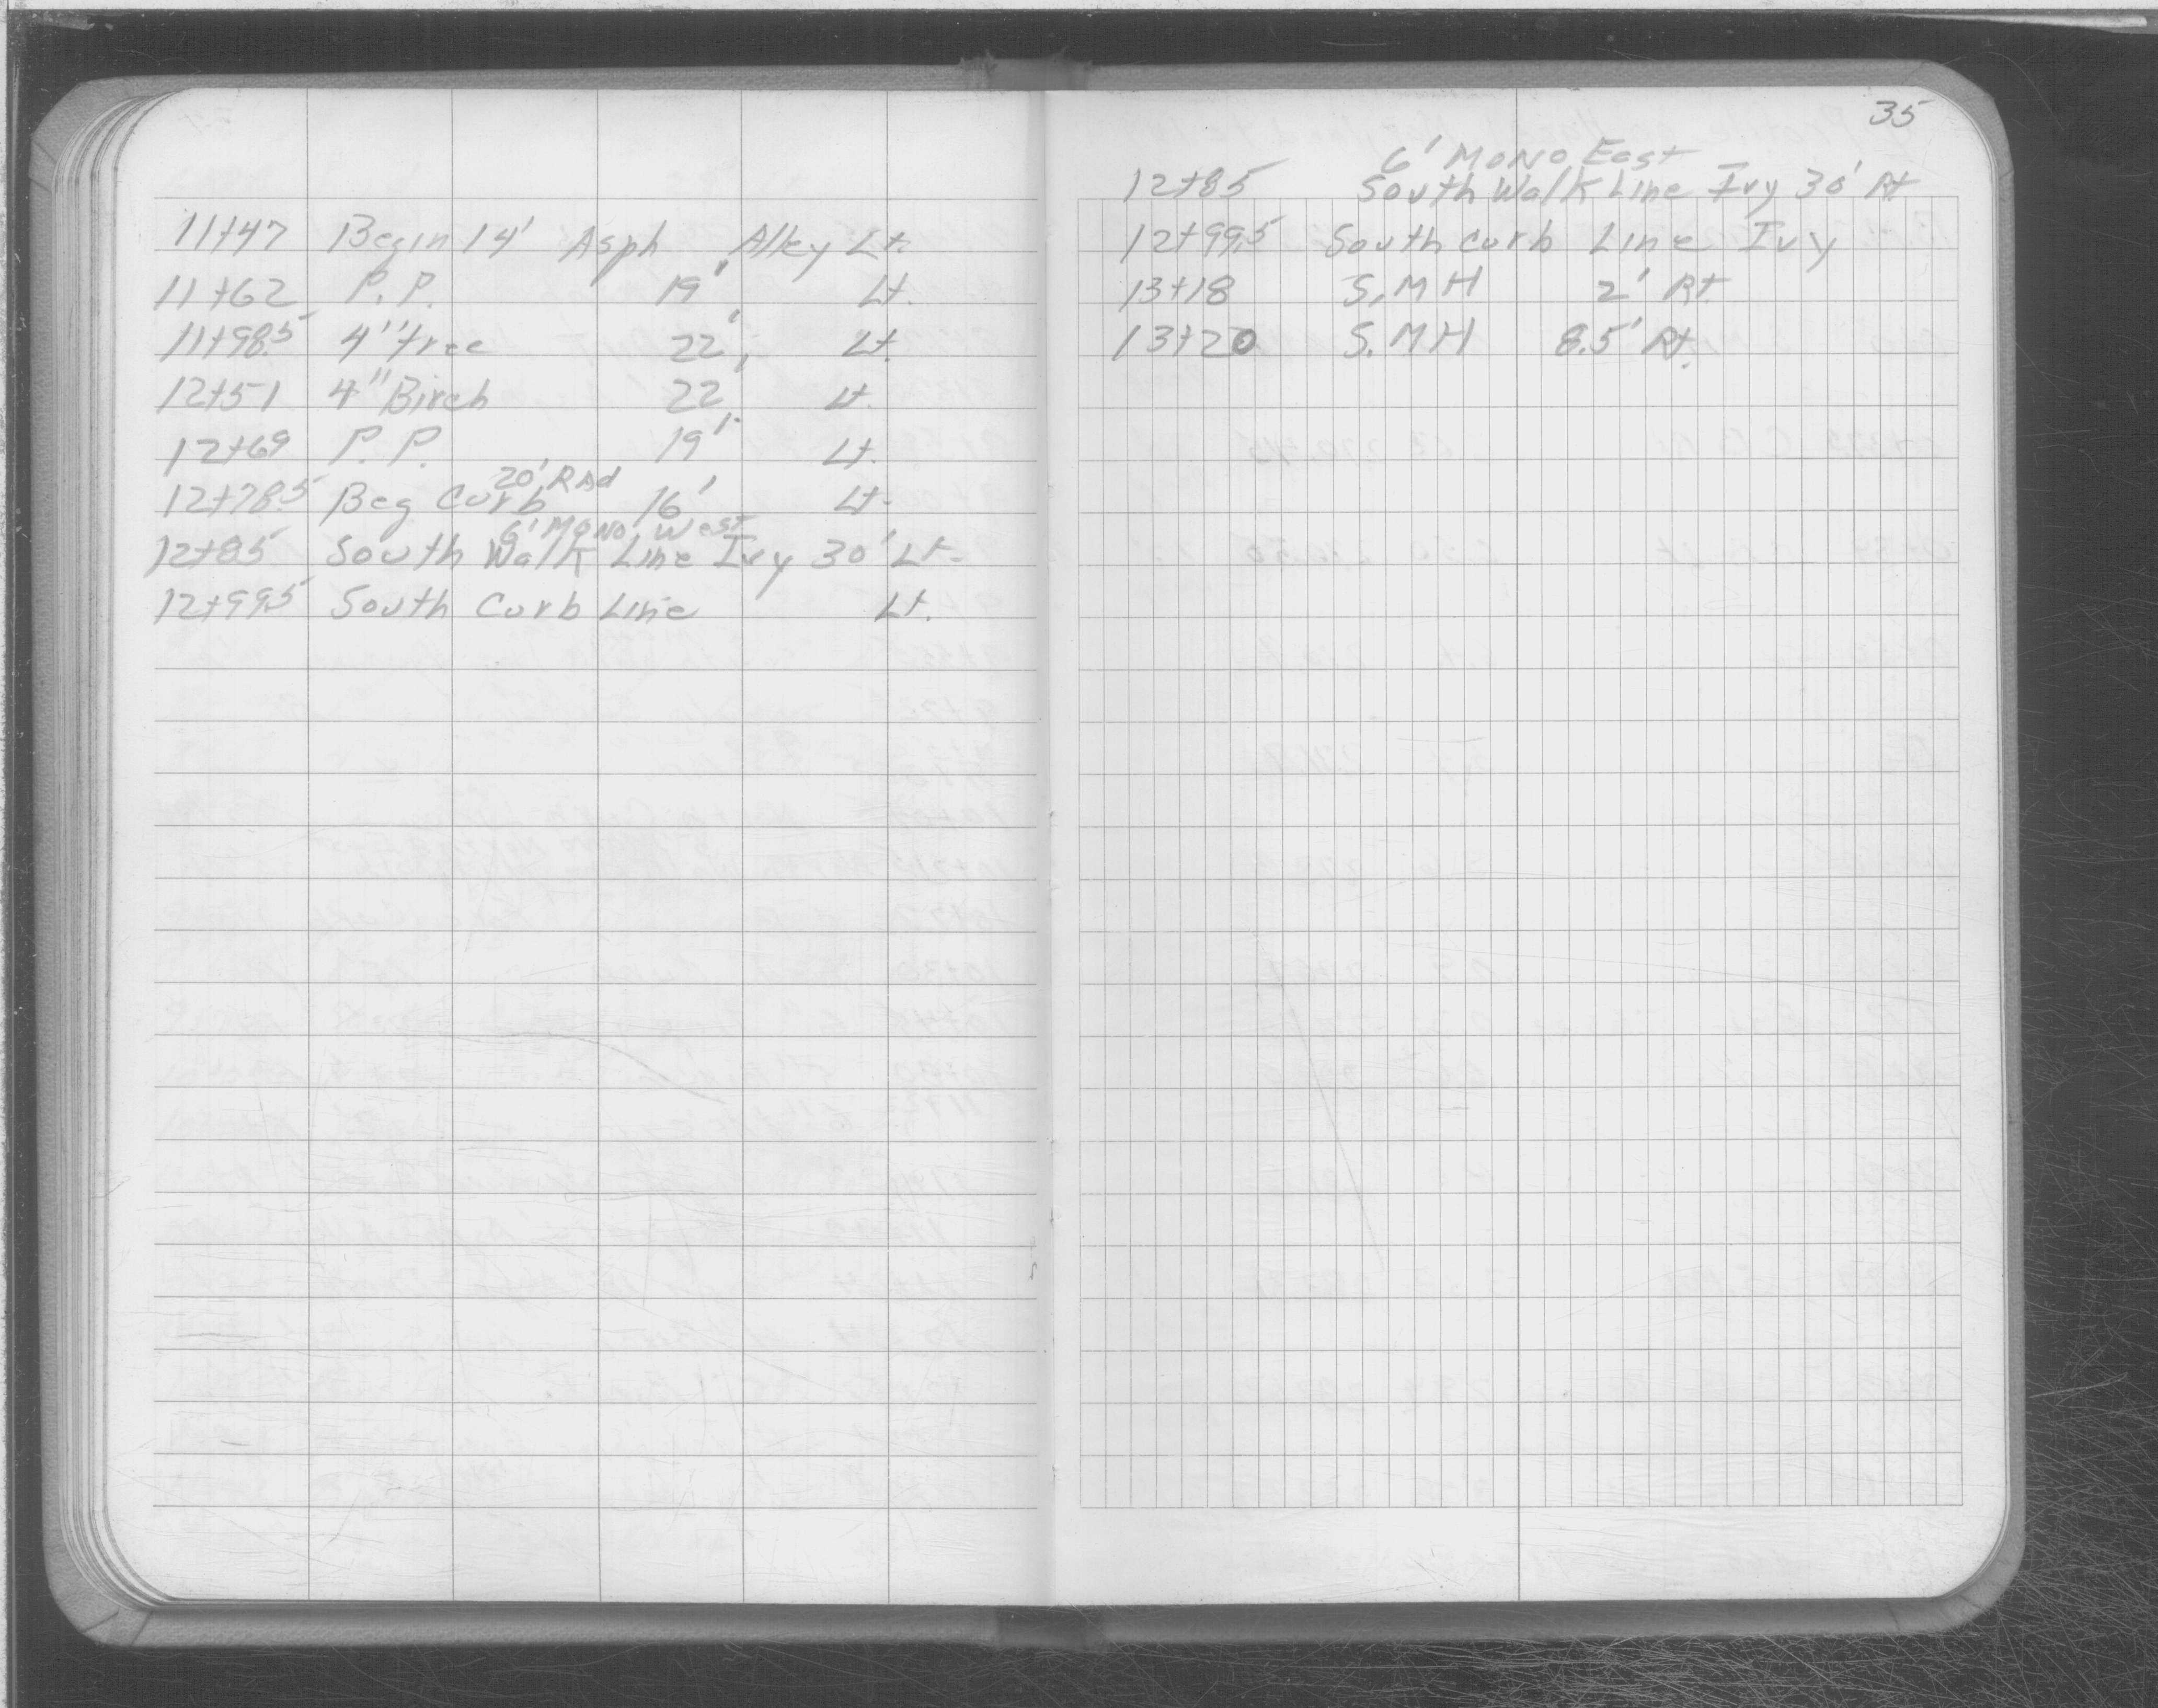 11+47 Begin 14' Asph Alley Lt.
11+62 P.P. 19' Lt.
11+98.5 4" tree 22' Lt.
12+51 4" Birch 22' Lt.
12+69 P.P. 19' Lt.
20' RAd
12+78.5 Beg Curb 16' Lt.
6' MONO West
12+85 South Walk Line Ivy 30' Lt.
12+99.5 South Curb Line Lt.
35
6' MONO East
12+85 South Walk Line Ivy 30' Rt
12+99.5 South Curb Line Ivy
13+18 S.MH 2' Rt.
13+20 S.MH 8.5' Rt.